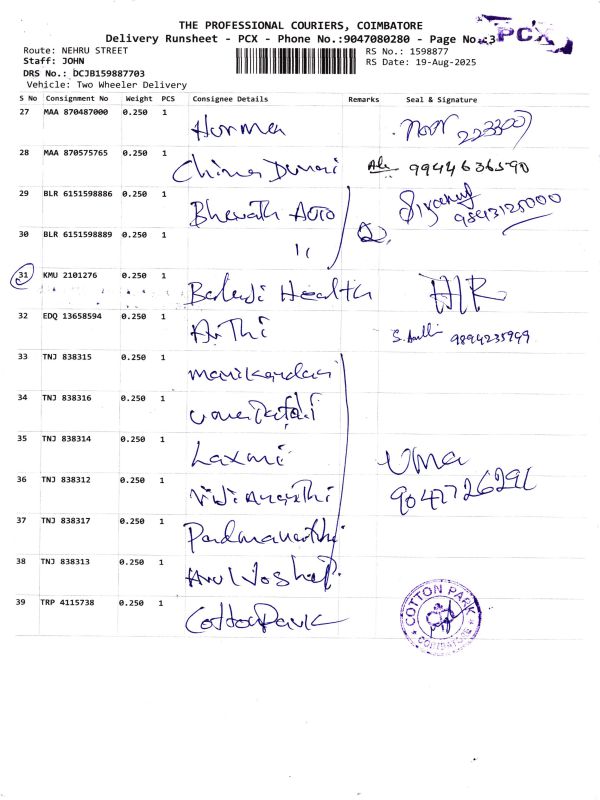 THE PROFESSIONAL COURIERS, COIMBATORE
Delivery Runsheet - PCX - Phone No.:9047080280 - Page No.:3
PCX
Route: NEHRU STREET
RS No.: 1598877
Staff: JOHN
RS Date: 19-Aug-2025
DRS No.: DCJB159887703
Vehicle: Two Wheeler Delivery
S No Consignment No Weight PCS Consignee Details Remarks Seal & Signature
27 MAA 870487000 0.250 1 Hurmea noor 223300
28 MAA 870575765 0.250 1 99446 36590
29 BLR 6151598886 0.250 1 Bharath Auto 9843125000
30 BLR 6151598889 0.250 1 "
31 KMU 2101276 0.250 1 Balaji Health
32 EDQ 13658594 0.250 1 Arthi 9894235949
33 TNJ 838315 0.250 1 manikandan
34 TNJ 838316 0.250 1
35 TNJ 838314 0.250 1 Laxmi Uma
36 TNJ 838312 0.250 1 9047726291
37 TNJ 838317 0.250 1
38 TNJ 838313 0.250 1
39 TRP 4115738 0.250 1 Cotton Park
COTTON PARK
COIMBATORE